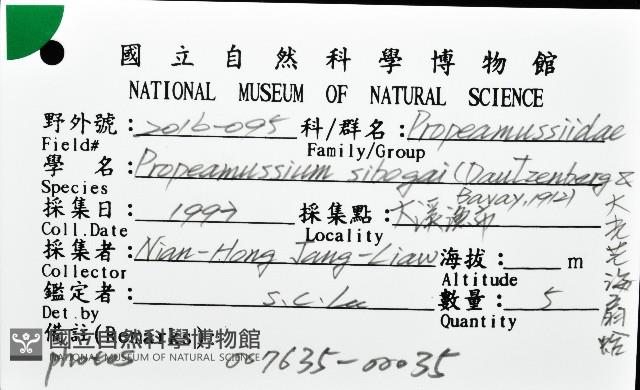 國立自然科學博物館
NATIONAL MUSEUM OF NATURAL SCIENCE
野外號: 2016-095 科/群名: Propeamussiidae
Field# Family/Group
學 名: Propeamussium sibogai (Dautzenberg &
Species Bavay, 1912)
採集日: 1997 採集點: 大溪漁印
Coll.Date Locality
採集者: Nian-Hong Jang-Liaw 海拔: m
Collector Altitude
鑑定者: S.C. Lee 數量: 5
Det.by Quantity
備註(Remarks)
photos 007635-00035
大光芒海扇蛤
國立自然科學博物館
NATIONAL MUSEUM OF NATURAL SCIENCE